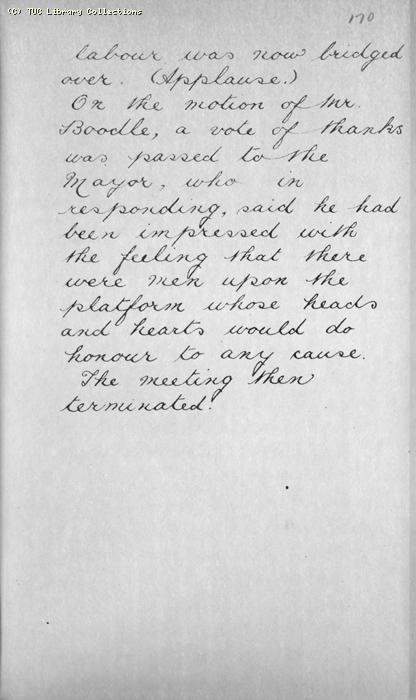 (C) TUC Library Collections
170
labour was now bridged
over. (Applause.)
On the motion of Mr.
Boodle, a vote of thanks
was passed to the
Mayor, who in
responding, said he had
been impressed with
the feeling that there
were men upon the
platform whose heads
and hearts would do
honour to any cause.
The meeting then
terminated.